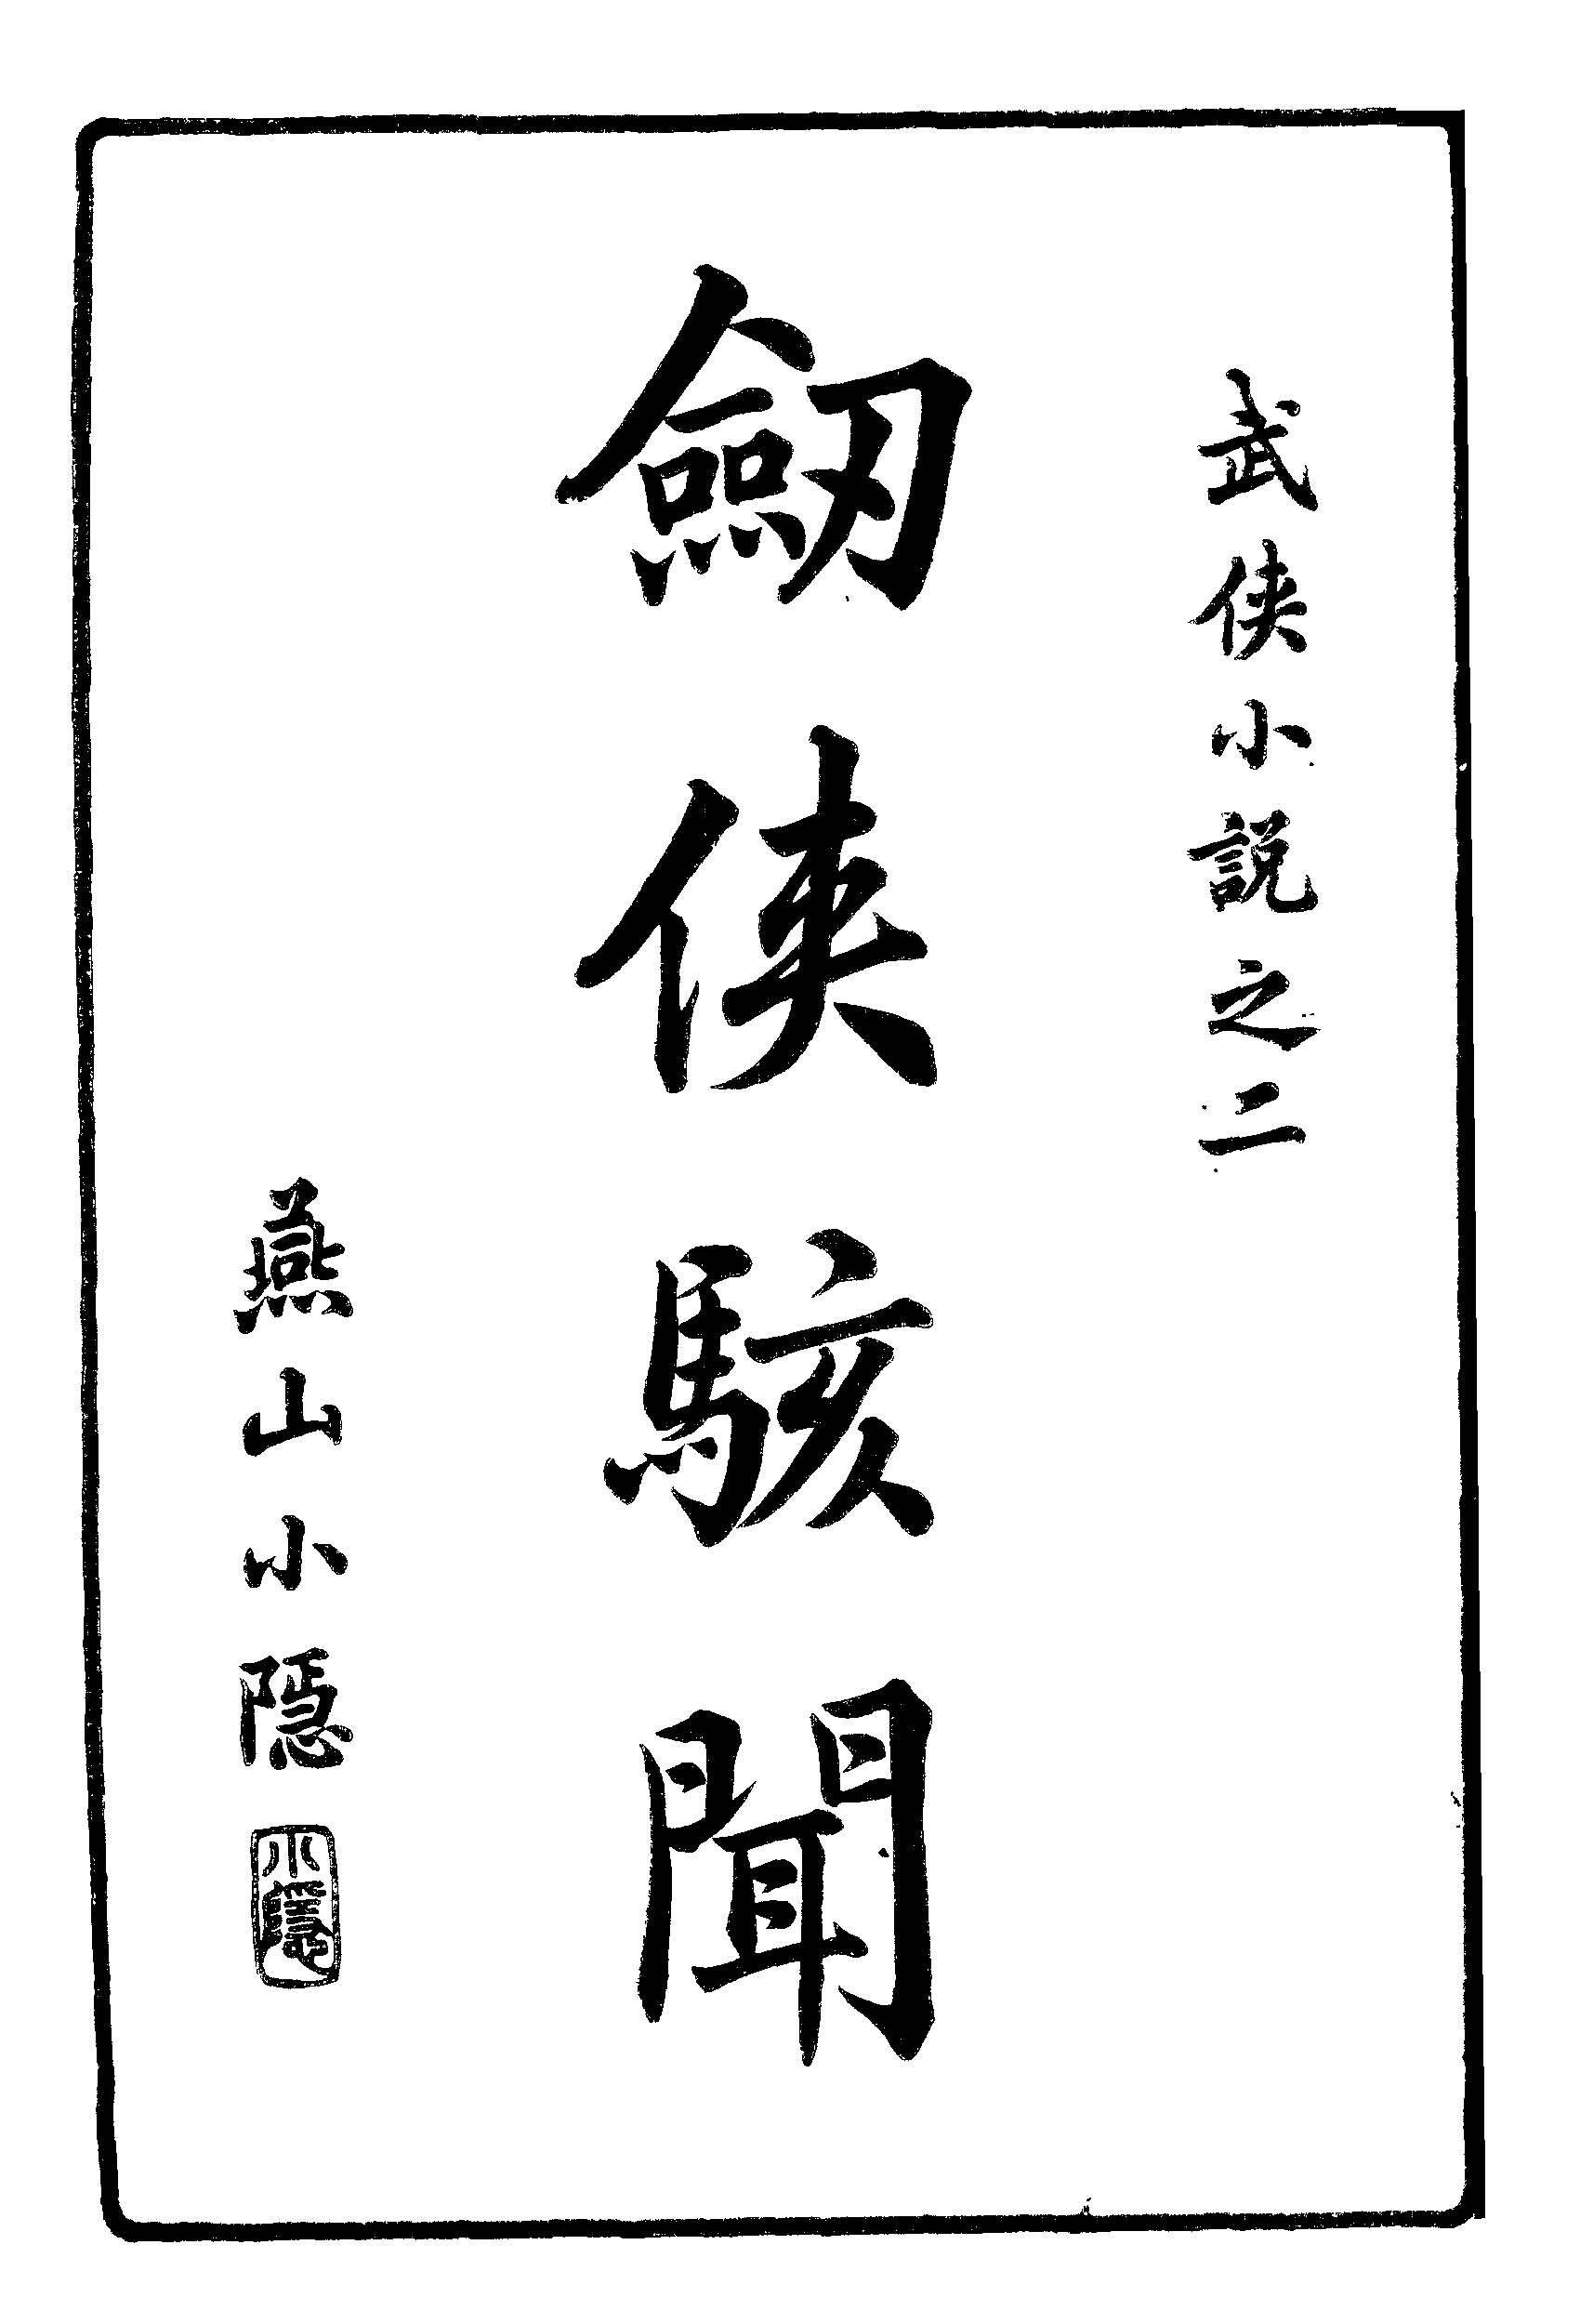 武俠小説之二
劒俠駭聞
燕山小隱
小隱